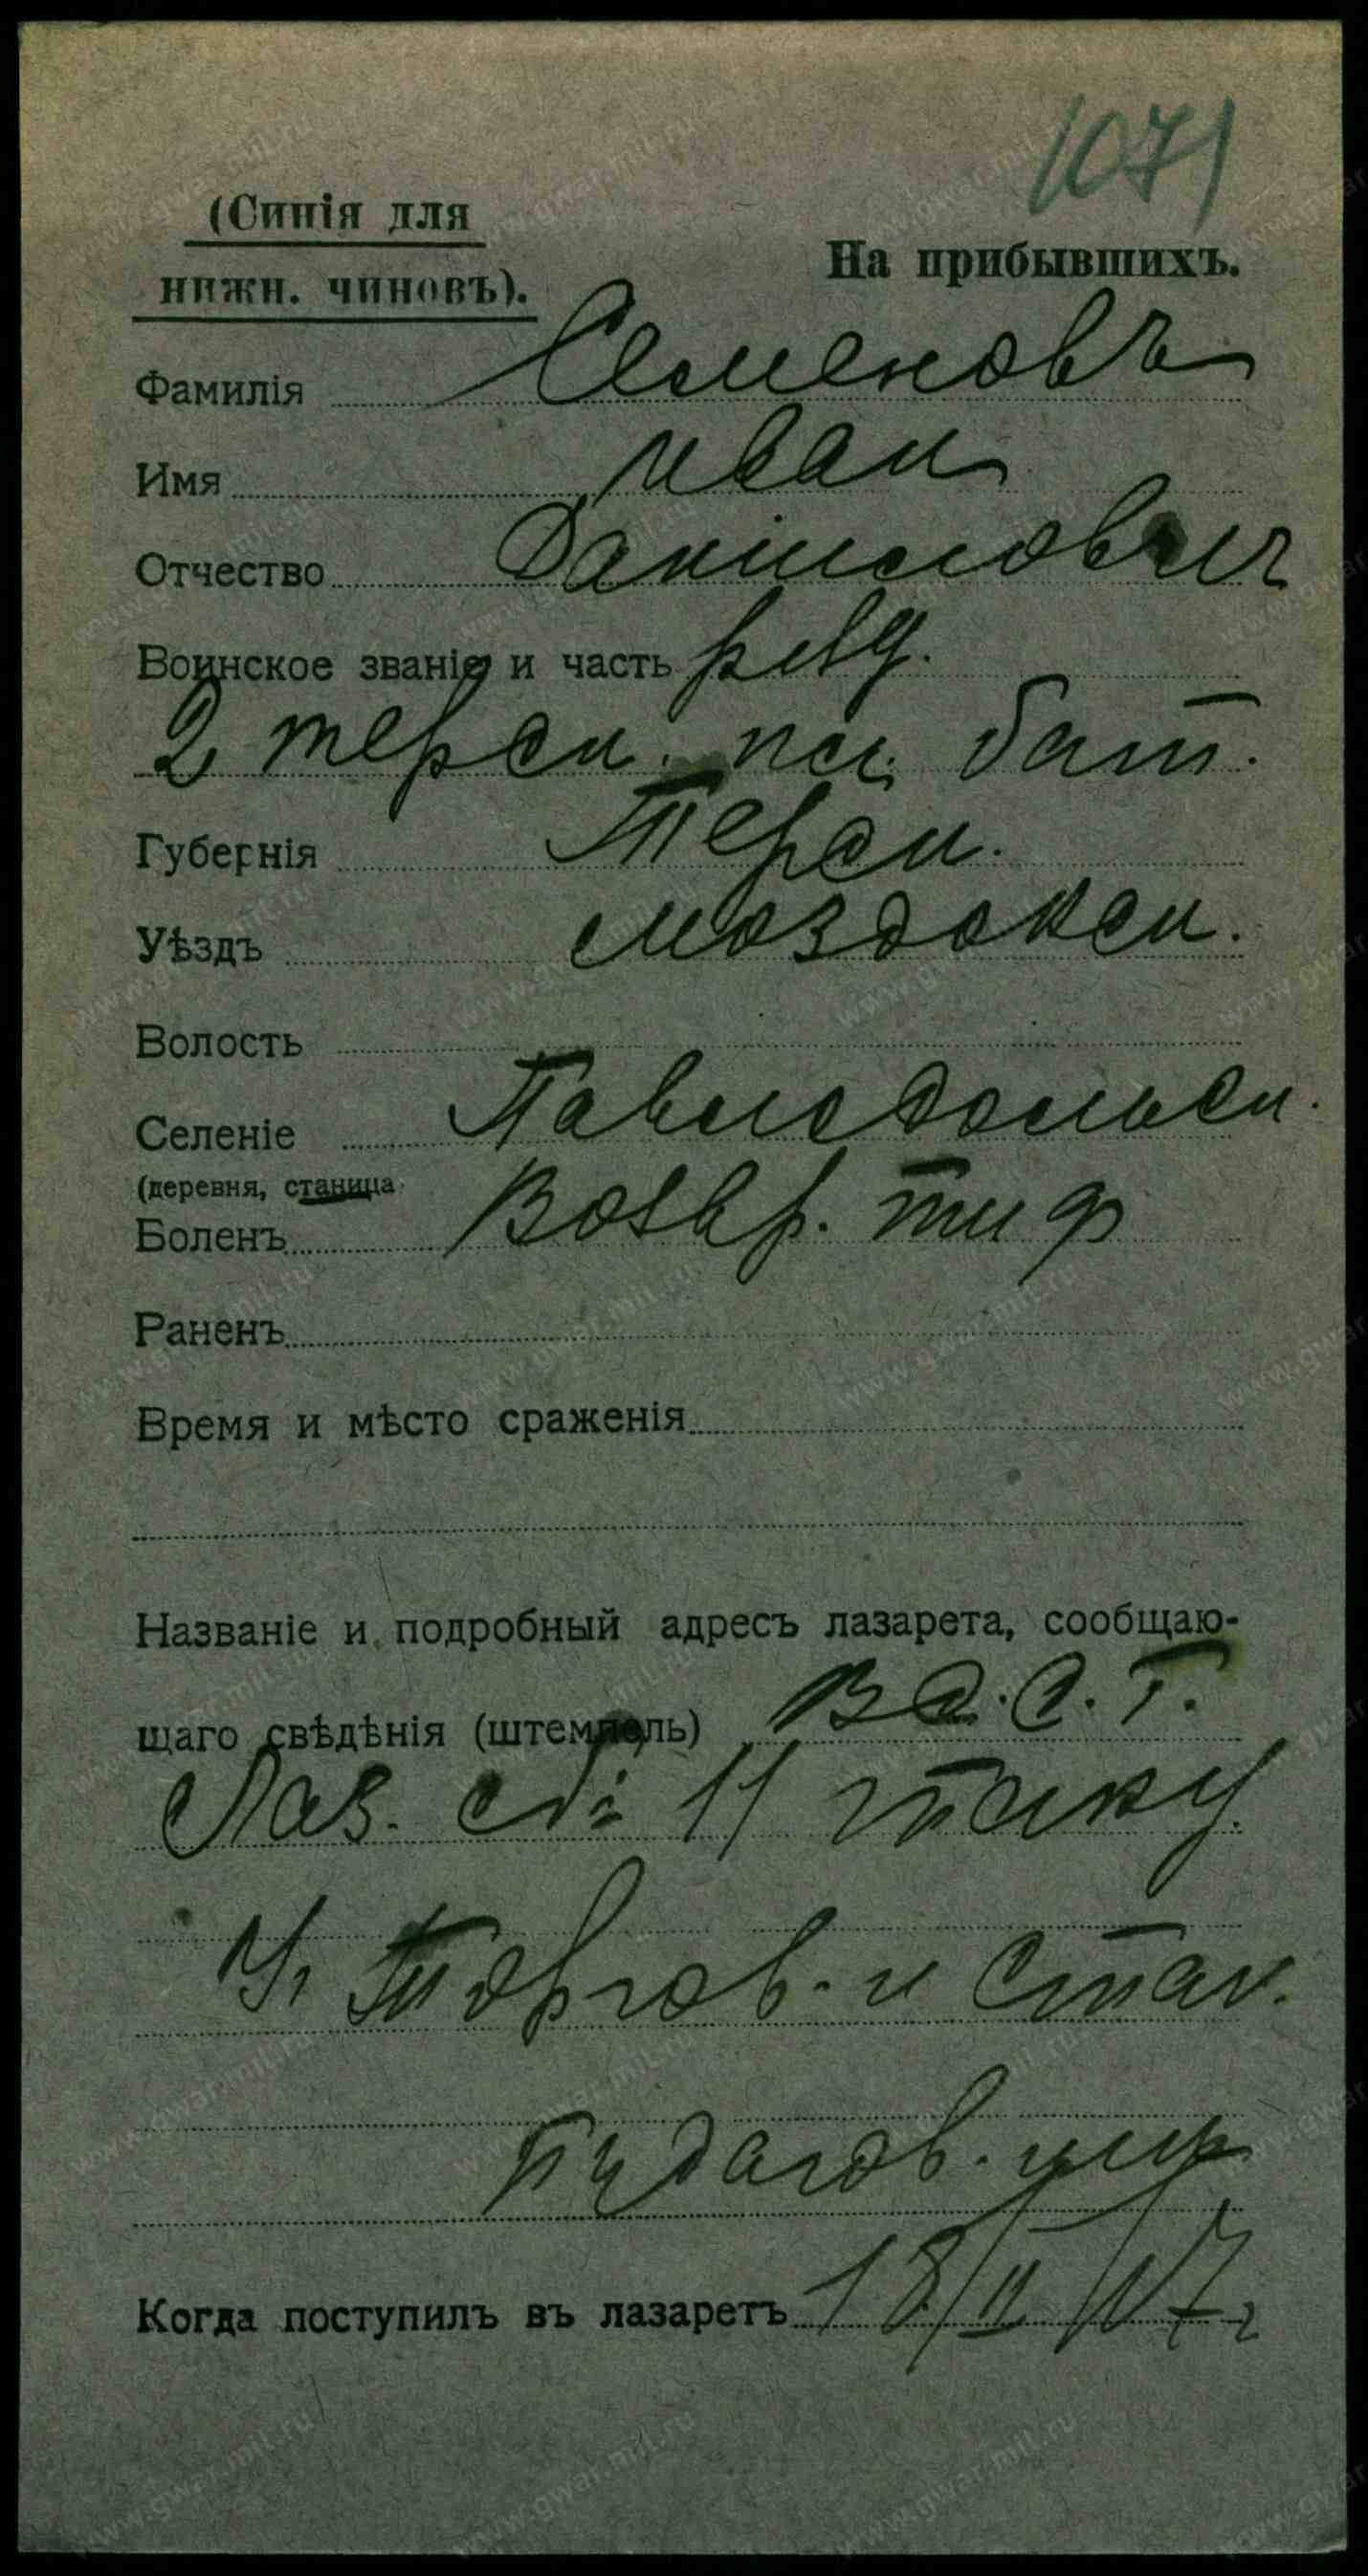 1071
(Синія для
нижн. чиновъ).
На прибывшихъ.
Фамилія Семеновъ
Имя Иван
Отчество Данилович
Воинское званіе и часть ряд.
2 терск. пл. бат.
Губернія Терск.
Уѣздъ Моздокск.
Волость
Селеніе Павлодольск.
(деревня, станица
Боленъ Возвр. тиф
Раненъ
Время и мѣсто сраженія
Названіе и подробный адресъ лазарета, сообщаю-
щаго свѣдѣнія (штемпель) В С. Г.
Лаз. 11
Торгов. и Стан.
Когда поступилъ въ лазаретъ 18/II 17 г